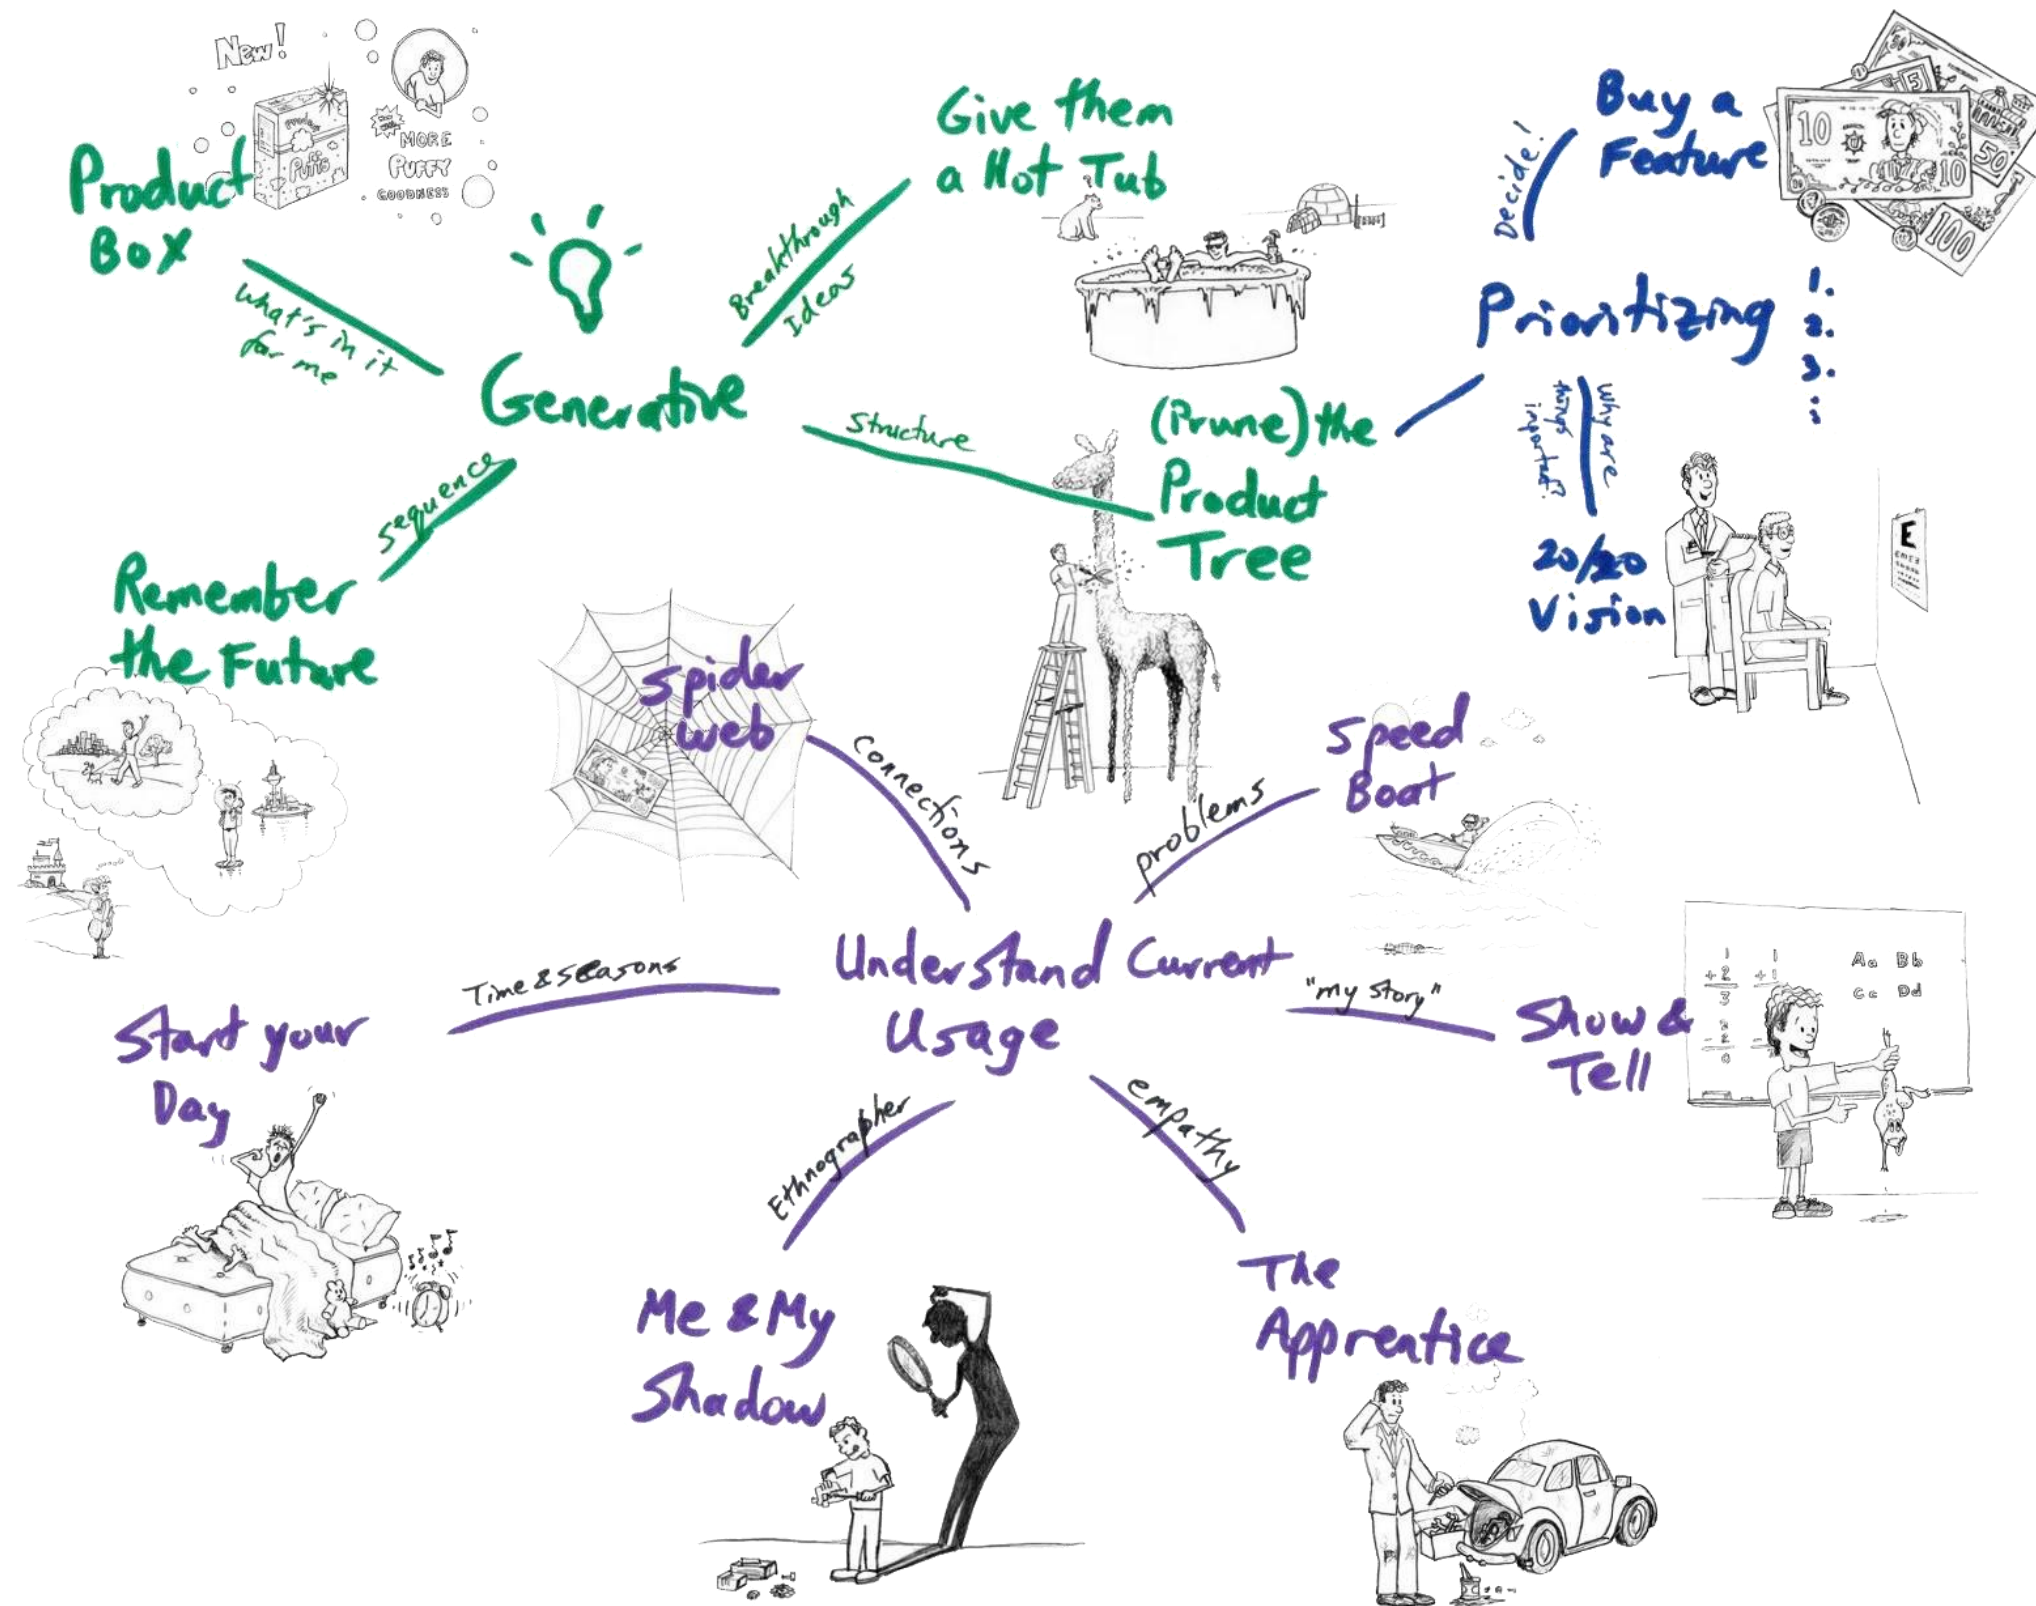 New!
MORE
PUFFY
GOODNESS
Puffs
Product
Box
What's in it
for me
Generative
Breakthrough
Ideas
Give them
a Hot Tub
Structure
(Prune) the
Product
Tree
Sequence
Remember
the Future
Decide!
Buy a
Feature
10
10
5
50
50
100
Prioritizing
1.
2.
3.
Why are
things
important?
20/20
Vision
E
Spider
web
Connections
problems
Speed
Boat
Understand Current
Usage
Time & seasons
Start your
Day
"my story"
Show &
Tell
1 1
+2 +1
3
Aa Bb
Cc Dd
Ethnographer
Me & My
Shadow
empathy
The
Apprentice